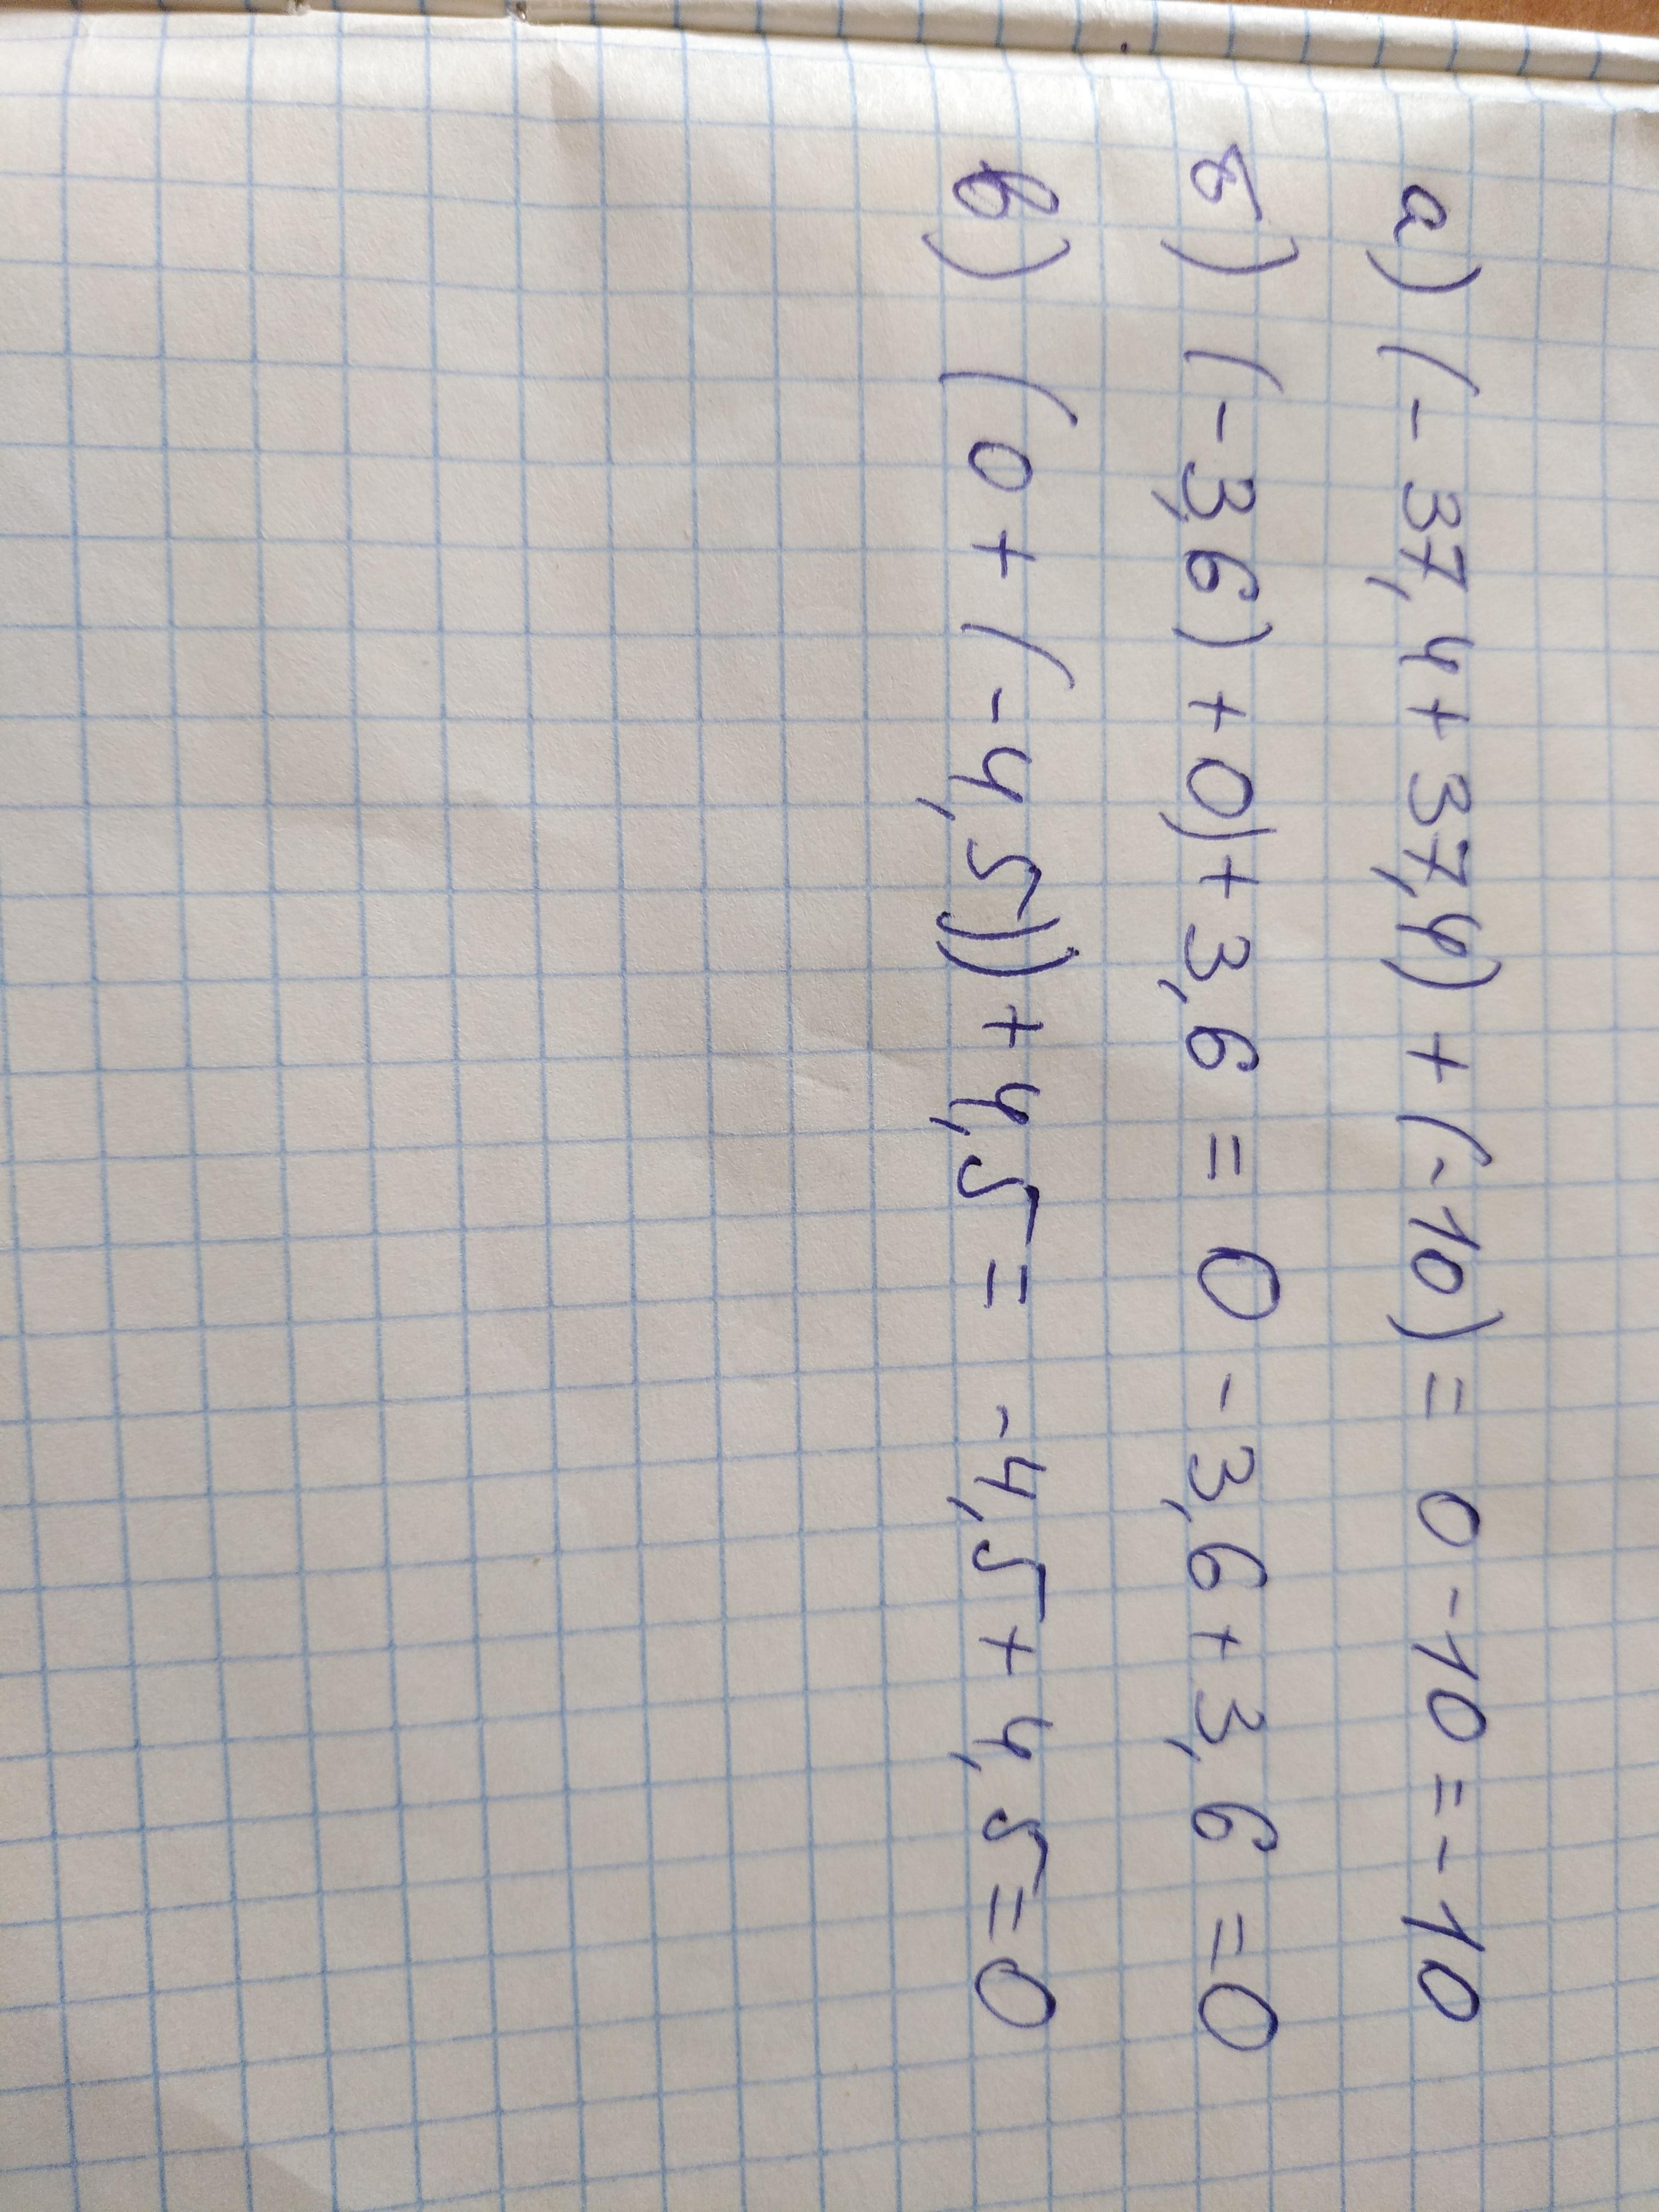 а) (-37,4+37,4)+(-10)= 0-10=-10
б) (-3,6)+0)+3,6=0-3,6+3,6=0
в) (0+(-4,5))+4,5=-4,5+4,5=0